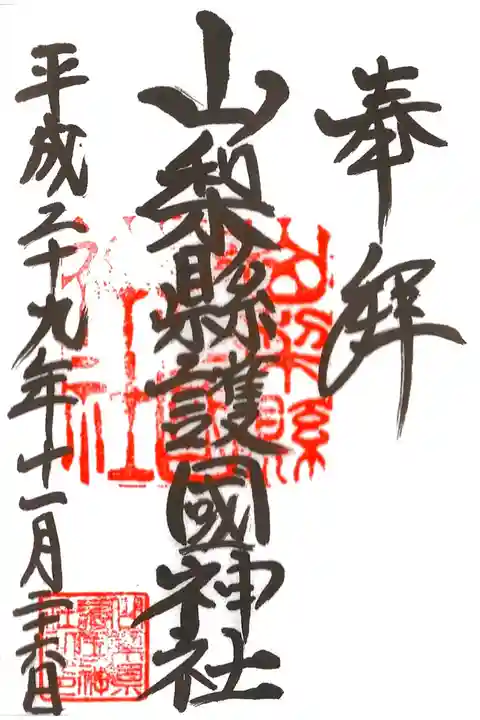 奉拜
山梨縣護國神社
平成二十九年十一月二十六日